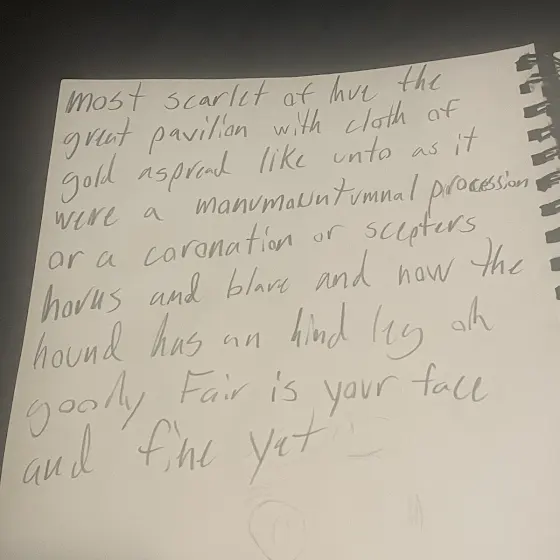 most scarlet of hue the
great pavilion with cloth of
gold aspread like unto as it
were a manumauntumnal procession
or a coronation or scepters
horus and blare and now the
hound has an hind leg oh
goody Fair is your face
and fine yet